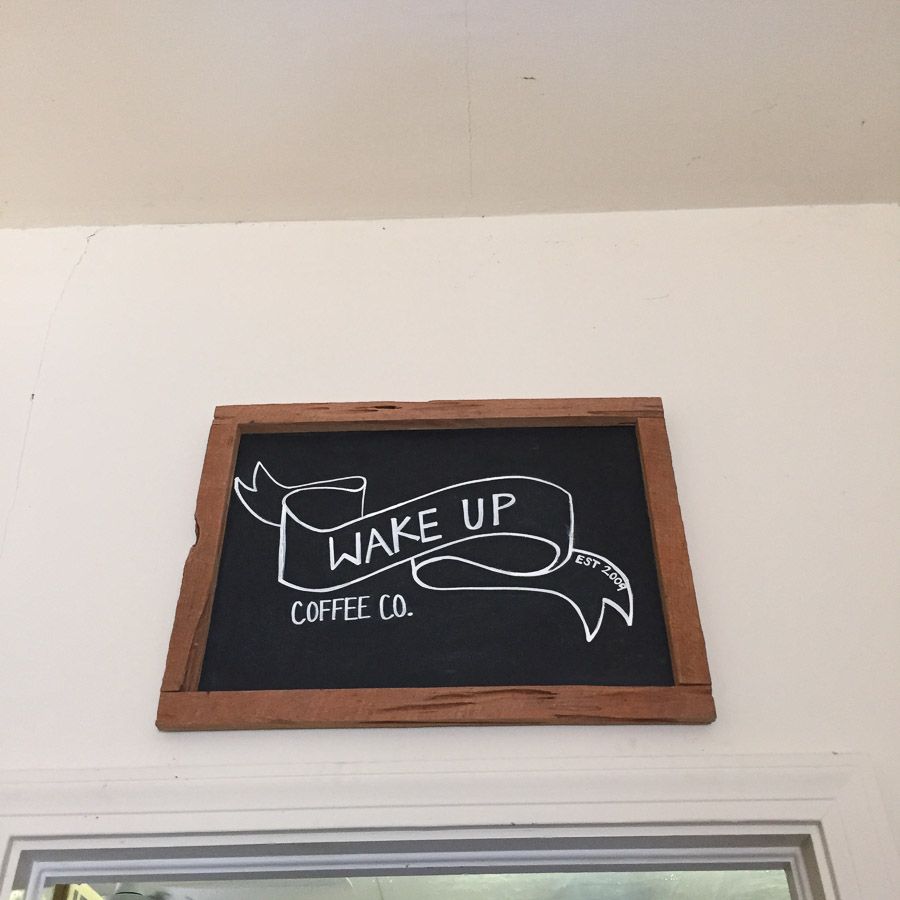 WAKE UP
EST 2009
COFFEE CO.